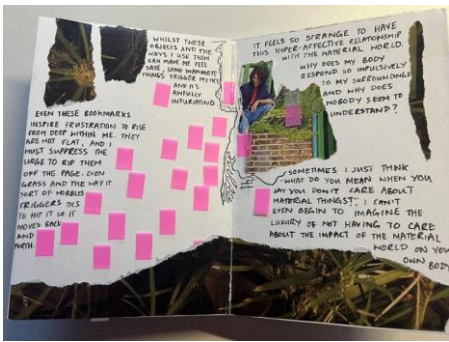 WHILST THESE
OBJECTS AND THE
WAYS I USE THEM
CAN MAKE ME FEEL
SAFE, SOME INANIMATE
THINGS TRIGGER MY TICS
AND IT'S
AWFULLY
INFURIATING
EVEN THESE BOOKMARKS
INSPIRE FRUSTRATION TO RISE
FROM DEEP WITHIN ME. THEY
ARE NOT FLAT, AND I
MUST SUPPRESS THE
URGE TO RIP THEM
OFF THE PAGE. EVEN
GRASS AND THE WAY IT
SORT OF WOBBLES
TRIGGERS TICS
TO HIT IT SO IT
MOVES BACK
AND
FORTH.
IT FEELS SO STRANGE TO HAVE
THIS HYPER-AFFECTIVE RELATIONSHIP
WITH THE MATERIAL WORLD.
WHY DOES MY BODY
RESPOND SO IMPULSIVELY
TO MY SURROUNDINGS
AND WHY DOES
NOBODY SEEM TO
UNDERSTAND?
SOMETIMES I JUST THINK
"WHAT DO YOU MEAN WHEN YOU
SAY YOU DON'T CARE ABOUT
MATERIAL THINGS?". I CAN'T
EVEN BEGIN TO IMAGINE THE
LUXURY OF NOT HAVING TO CARE
ABOUT THE IMPACT OF THE MATERIAL
WORLD ON YOUR
OWN BODY